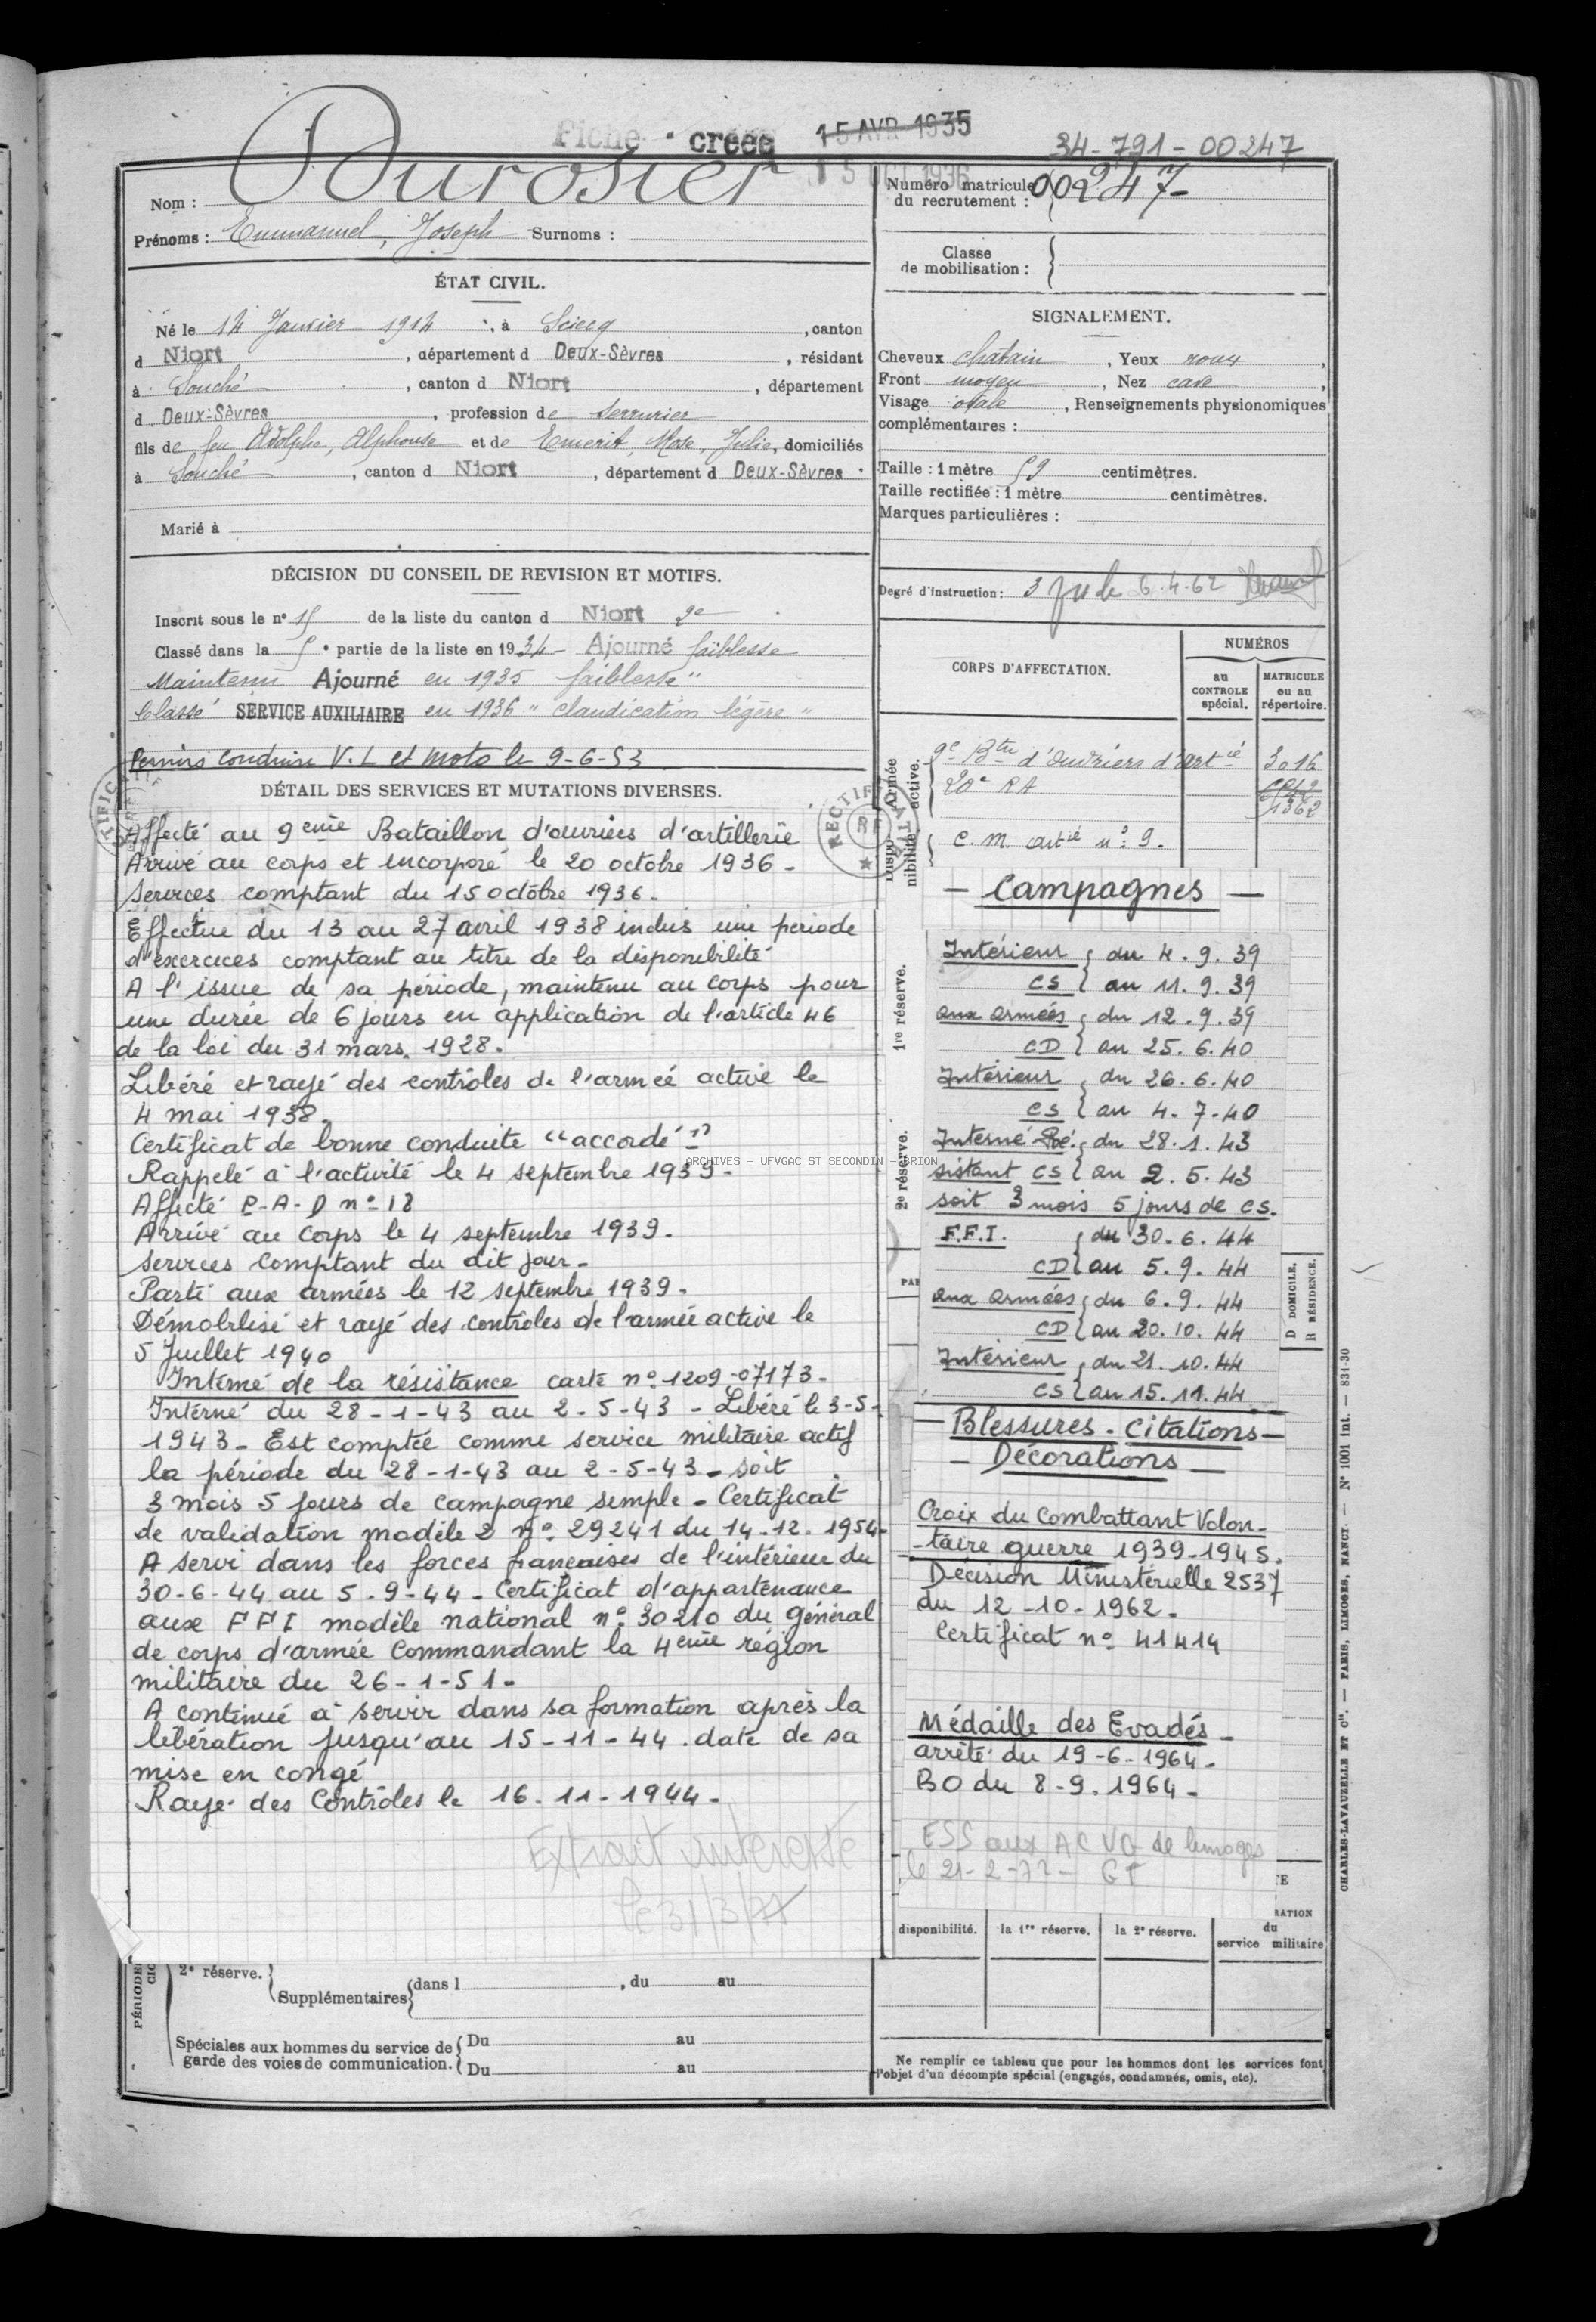 Fiche créée 15 AVR 1935
15 OCT 1936
34-791-00247
Nom : Durosier
Prénoms : Emmanuel, Joseph Surnoms :
ÉTAT CIVIL.
Né le 14 Janvier 1914, à Sciecq, canton
d Niort, département d Deux-Sèvres, résidant
à Souché, canton d Niort, département
d Deux-Sèvres, profession de serrurier
fils de feu Adolphe, Alphonse et de Emerit, Rose, Julie, domiciliés
à Souché, canton d Niort, département d Deux-Sèvres.
Marié à
DÉCISION DU CONSEIL DE REVISION ET MOTIFS.
Inscrit sous le n° 15 de la liste du canton d Niort 2e
Classé dans la 5e partie de la liste en 1934 - Ajourné faiblesse
Maintenu Ajourné en 1935 faiblesse"
Classé SERVICE AUXILIAIRE en 1936 "claudication légère"
Permis conduire V.L et moto le 9-6-53
DÉTAIL DES SERVICES ET MUTATIONS DIVERSES.
Affecté au 9eme Bataillon d'ouvriers d'artillerie
Arrivé au corps et incorporé le 20 octobre 1936 -
Services comptant du 15 octobre 1936 -
Effectue du 13 au 27 avril 1938 inclus une période
d'exercices comptant au titre de la disponibilité
A l'issue de sa période, maintenu au corps pour
une durée de 6 jours en application de l'article 46
de la loi du 31 mars 1928.
Libéré et rayé des contrôles de l'armée active le
4 mai 1938.
Certificat de bonne conduite "accordé"
Rappelé à l'activité le 4 septembre 1939 -
Affecté P.A.D n° 18
Arrivé au corps le 4 septembre 1939.
Services comptant du dit jour -
Parti aux armées le 12 septembre 1939 -
Démobilisé et rayé des contrôles de l'armée active le
5 Juillet 1940
Interné de la résistance carte n° 1209-07173 -
Interné du 28-1-43 au 2-5-43 - Libéré le 3-5-
1943 - Est comptée comme service militaire actif
la période du 28-1-43 au 2-5-43 - soit
3 mois 5 jours de campagne simple - Certificat
de validation modèle 2 n° 29241 du 14-12-1954 -
A servi dans les forces françaises de l'intérieur du
30-6-44 au 5-9-44 - Certificat d'appartenance
aux FFI modèle national n° 30210 du général
de corps d'armée commandant la 4eme région
militaire du 26-1-51 -
A continué à servir dans sa formation après la
libération jusqu'au 15-11-44 date de sa
mise en congé
Rayé des Contrôles le 16-11-1944 -
Extrait intéressé
le 31/3/77
PÉRIODE
2e réserve.
Supplémentaires dans l , du au
Spéciales aux hommes du service de garde des voies de communication.
Du au
Du au
Numéro matricule du recrutement : 00247
Classe de mobilisation :
SIGNALEMENT.
Cheveux chatain, Yeux roux,
Front moyen, Nez cave,
Visage ovale, Renseignements physionomiques
complémentaires :
Taille : 1 mètre 59 centimètres.
Taille rectifiée : 1 mètre centimètres.
Marques particulières :
Degré d'instruction : 3 6.4.62
CORPS D'AFFECTATION.
NUMÉROS
au CONTROLE spécial.
MATRICULE ou au répertoire.
Armée active.
9e Bton d'Ouvriers d'artie 3016
20e RA 1362
Disponibilité.
C.M. artie n° 9.
- Campagnes -
1re réserve.
Intérieur du 4.9.39
CS au 11.9.39
aux armées du 12.9.39
CD au 25.6.40
Intérieur du 26.6.40
CS au 4.7.40
Interné Ré- du 28.1.43
sistant CS au 2.5.43
soit 3 mois 5 jours de CS.
2e réserve.
F.F.I. du 30.6.44
CD au 5.9.44
aux armées du 6.9.44
CD au 20.10.44
Intérieur du 21.10.44
CS au 15.11.44
D DOMICILE.
R RÉSIDENCE.
- Blessures - Citations -
- Décorations -
Croix du Combattant Volon-
-taire guerre 1939-1945.
Décision Ministérielle 2537
du 12-10-1962 -
Certificat n° 41414
Médaille des Evadés -
arrêté du 19-6-1964 -
BO du 8-9-1964 -
ESS aux ACVG de Limoges
le 21-2-72 - GT
disponibilité.
la 1re réserve.
la 2e réserve.
du service militaire
Ne remplir ce tableau que pour les hommes dont les services font
l'objet d'un décompte spécial (engagés, condamnés, omis, etc).
CHARLES-LAVAUZELLE ET Cie. — PARIS, LIMOGES, NANCY. — N° 1001 int. — 831-30
ARCHIVES - UFVGAC ST SECONDIN - BRION